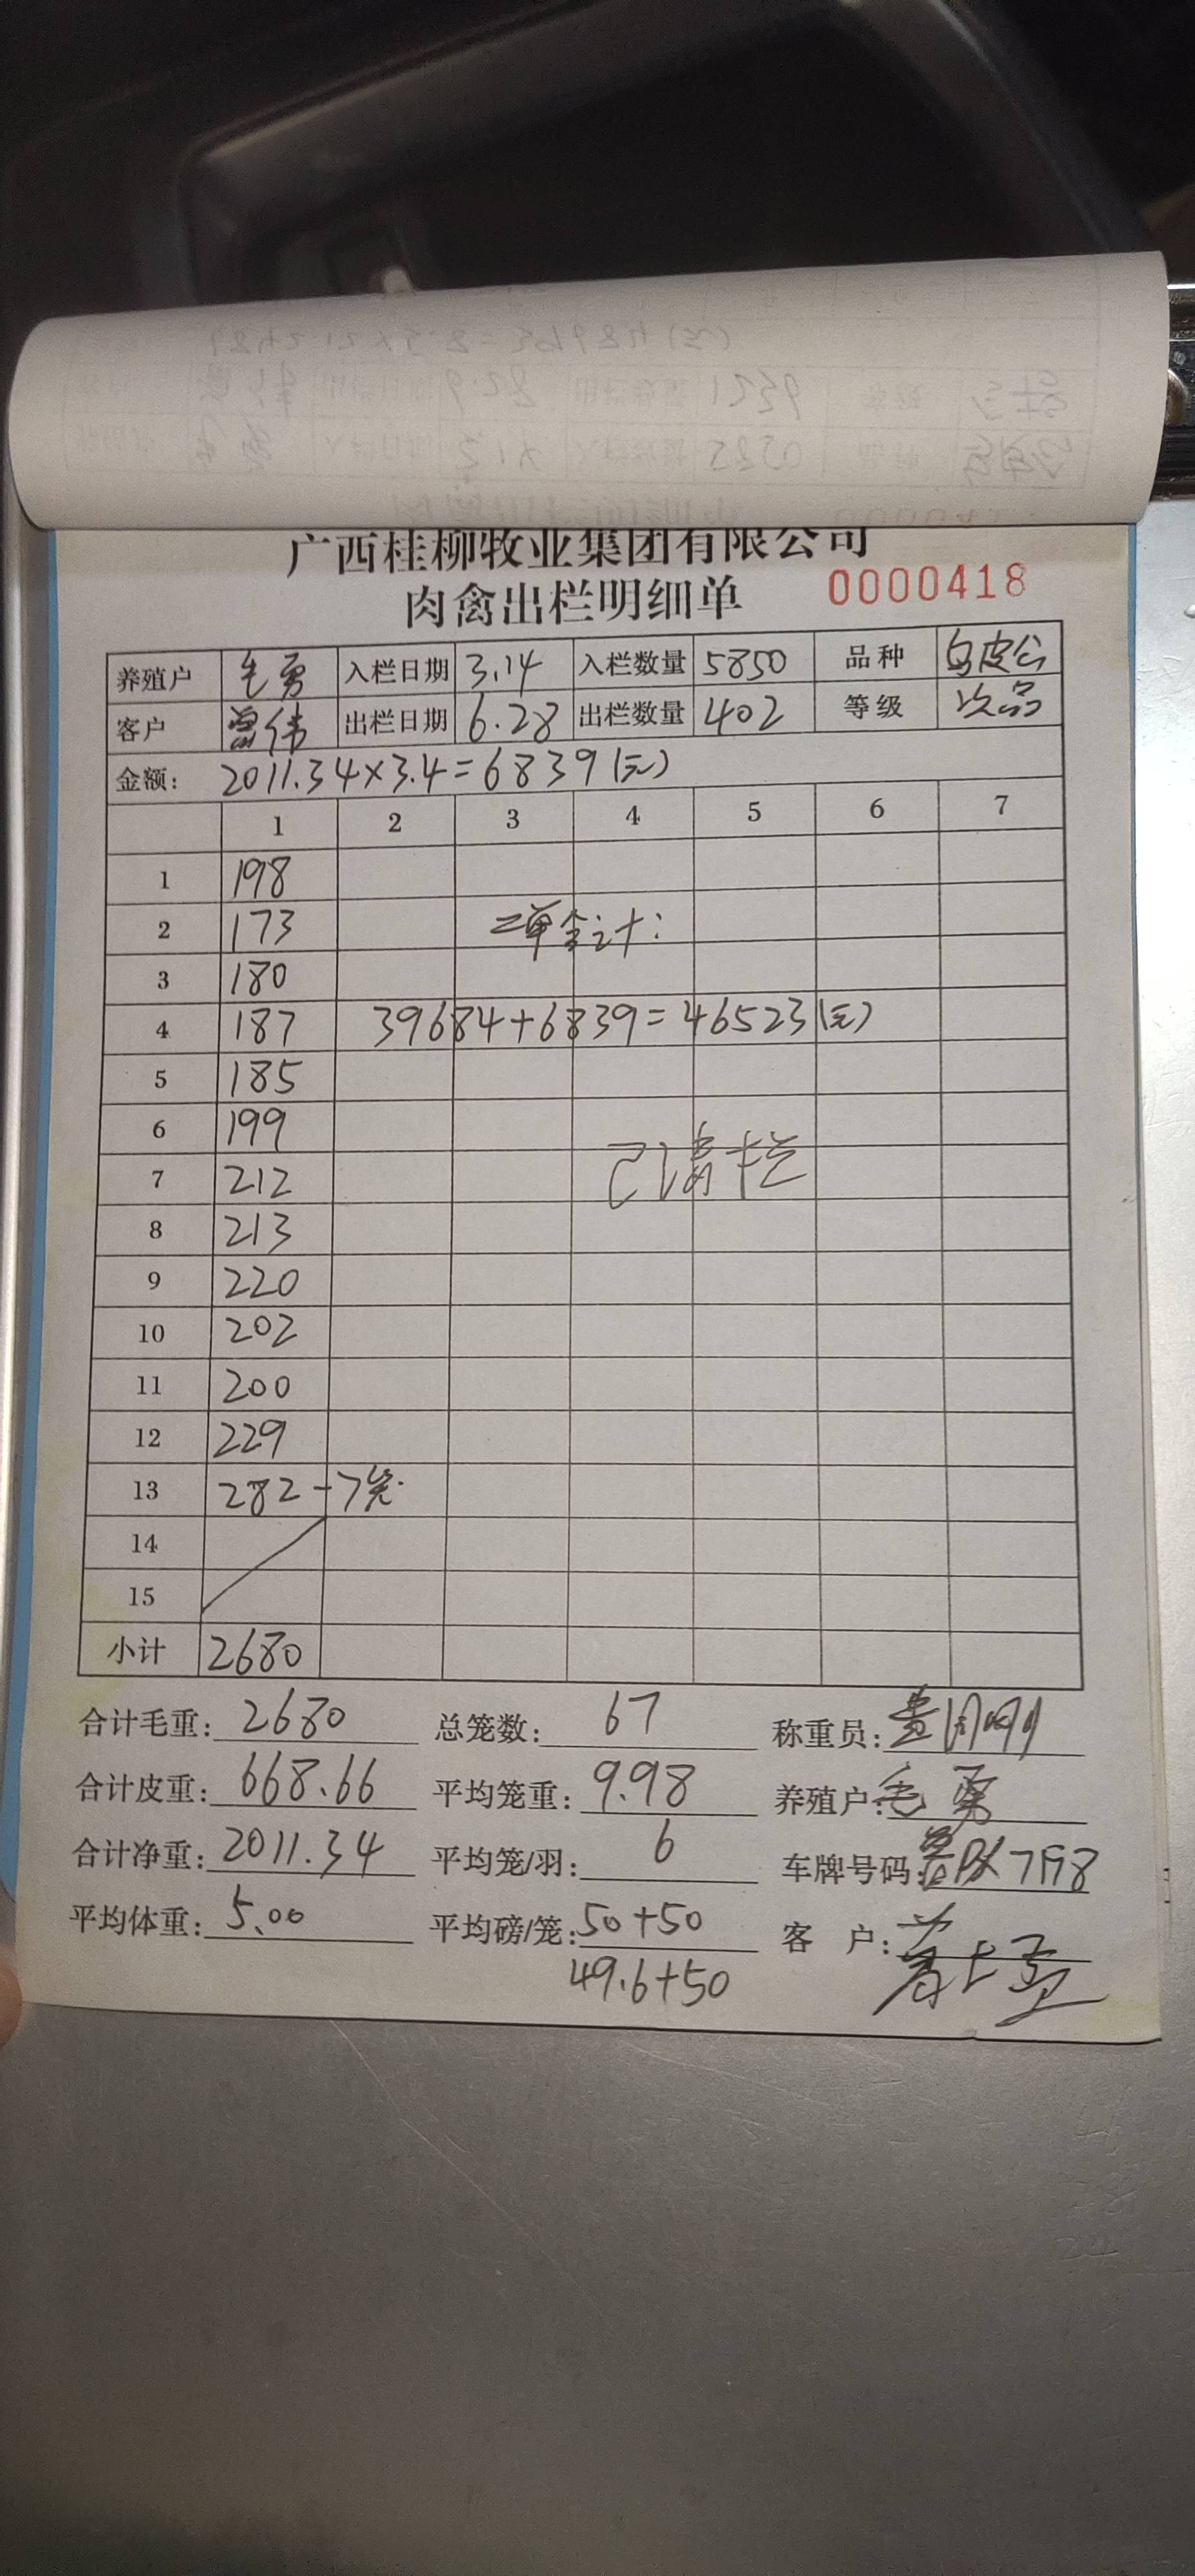 广西桂柳牧业集团有限公司
肉禽出栏明细单 0000418
养殖户 毛勇 入栏日期 3.14 入栏数量 5850 品种 乌皮公
客户 曾伟 出栏日期 6.28 出栏数量 402 等级 次品
金额: 2011.34×3.4=6839(元)
1 2 3 4 5 6 7
1 198
2 173 二单合计:
3 180
4 187 39684+6839=46523(元)
5 185
6 199
7 212 已清栏
8 213
9 220
10 202
11 200
12 229
13 282-7笼
14
15
小计 2680
合计毛重: 2680 总笼数: 67 称重员:
合计皮重: 668.66 平均笼重: 9.98 养殖户: 毛勇
合计净重: 2011.34 平均笼/羽: 6 车牌号码:
平均体重: 5.00 平均磅/笼: 50+50 客 户:
49.6+50